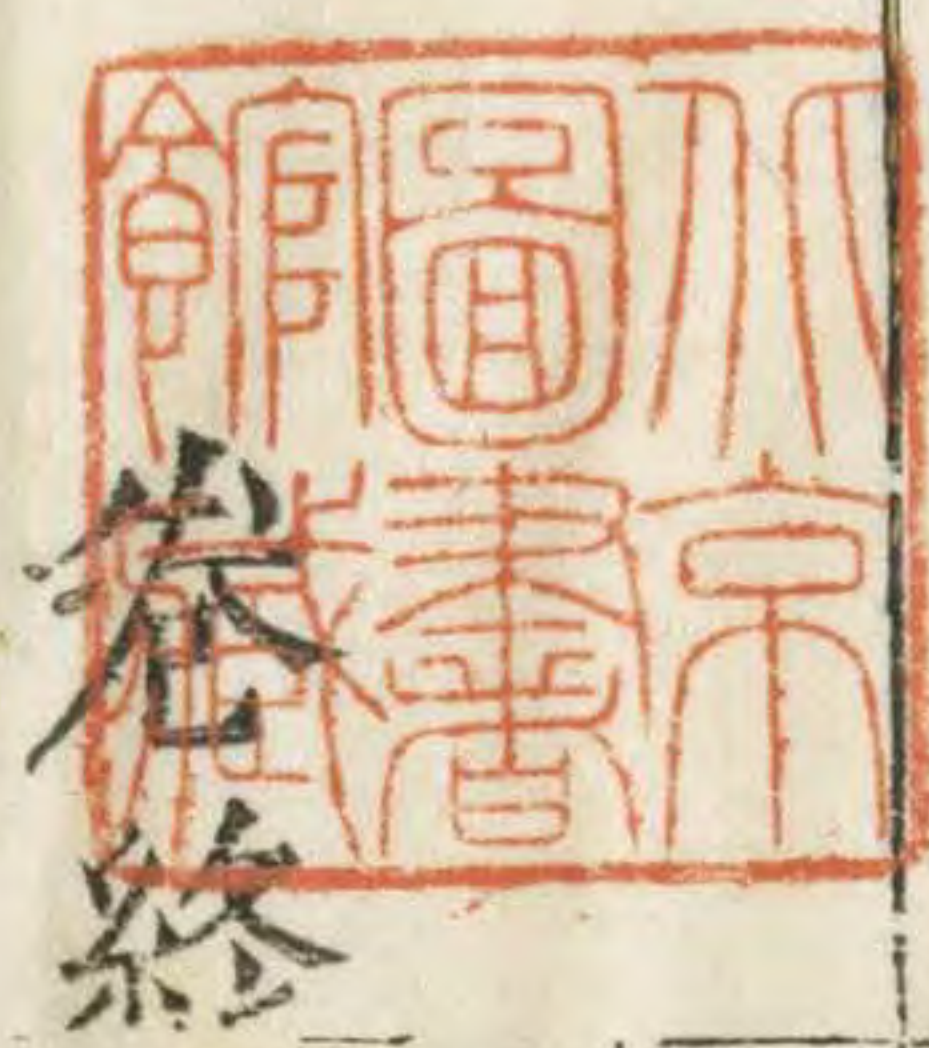 北京
圖書
館藏
卷終